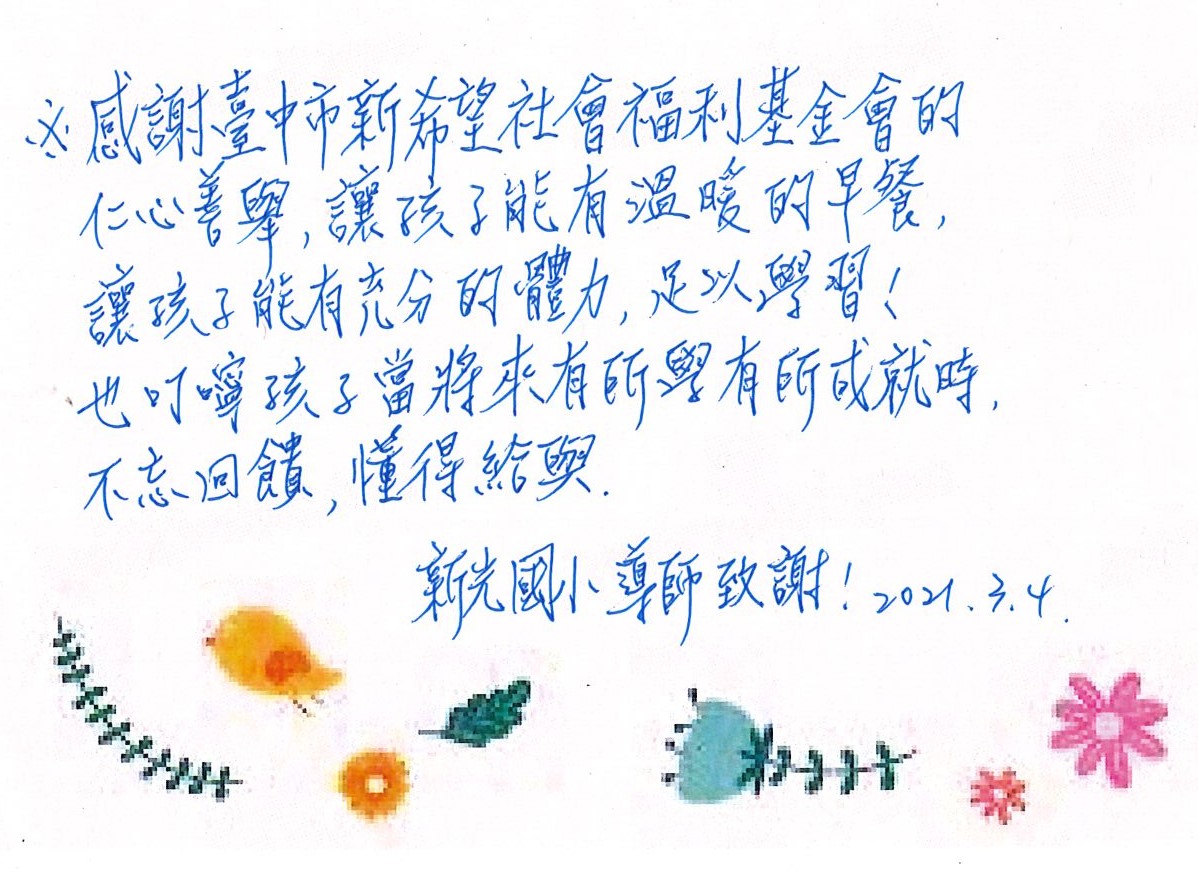 ※感謝臺中市新希望社會福利基金會的
仁心善舉,讓孩子能有溫暖的早餐,
讓孩子能有充分的體力,足以學習!
也叮嚀孩子當將來有所學有所成就時,
不忘回饋,懂得給與.
新光國小導師致謝!2021.3.4.